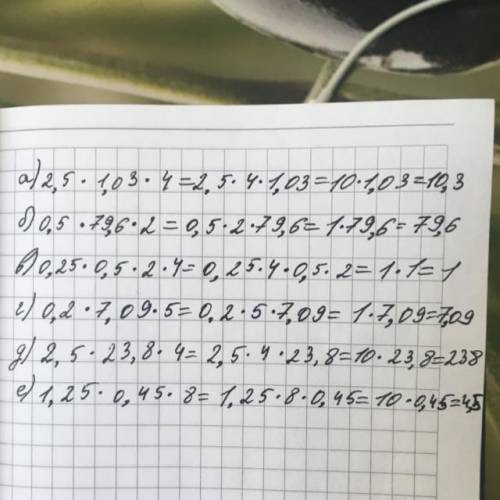 а) 2,5 · 1,03 · 4 = 2,5 · 4 · 1,03 = 10 · 1,03 = 10,3
б) 0,5 · 79,6 · 2 = 0,5 · 2 · 79,6 = 1 · 79,6 = 79,6
в) 0,25 · 0,5 · 2 · 4 = 0,25 · 4 · 0,5 · 2 = 1 · 1 = 1
г) 0,2 · 7,09 · 5 = 0,2 · 5 · 7,09 = 1 · 7,09 = 7,09
д) 2,5 · 23,8 · 4 = 2,5 · 4 · 23,8 = 10 · 23,8 = 238
е) 1,25 · 0,45 · 8 = 1,25 · 8 · 0,45 = 10 · 0,45 = 4,5